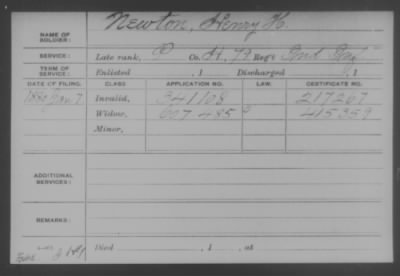 Newton, Henry H.
NAME OF SOLDIER:
SERVICE: Late rank, P Co. H, 79 Reg't Ind Inf
TERM OF SERVICE: Enlisted , 1 Discharged , 1
DATE OF FILING. CLASS. APPLICATION NO. LAW. CERTIFICATE NO.
1880 Jan. 7 Invalid, 341108 217267
Widow, 607 485 415359
Minor,
ADDITIONAL SERVICES:
REMARKS:
Died , 1 , at